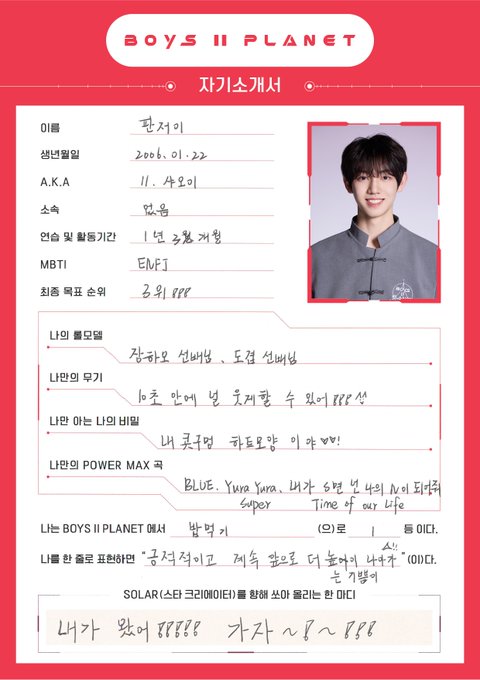 BOYS II PLANET
자기소개서
이름 판저이
생년월일 2006.01.22
A.K.A 11. 샤오이
소속 없음
연습 및 활동기간 1년 3개월
MBTI ENFJ
최종 목표 순위 3위 888
나의 롤모델
장하오 선배님, 도겸 선배님
나만의 무기
10초 안에 널 웃게할 수 있어 888
나만 아는 나의 비밀
내 콧구멍 하트모양 이야 ♡♡!
나만의 POWER MAX 곡
BLUE. Yura Yura. 내가 S면 넌 나의 N이 되어줘
Super Time of our Life
나는 BOYS II PLANET 에서 밥먹기 (으)로 1 등 이다.
나를 한 줄로 표현하면 "긍정적이고 계속 앞으로 더 높이 나아가 "(이)다.
는 기쁨이
SOLAR(스타 크리에이터)를 향해 쏘아 올리는 한 마디
내가 왔어 88888 가자~8~888